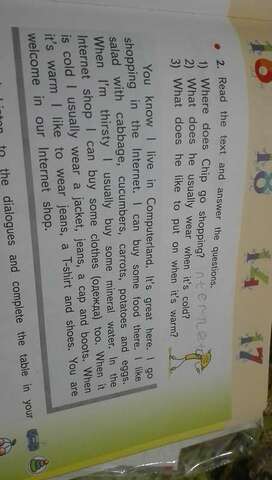 10 18 14 17
2. Read the text and answer the questions.
1) Where does Chip go shopping? nternet
2) What does he usually wear when it's cold?
3) What does he like to put on when it's warm?
You know I live in Computerland. It's great here. I go
shopping in the Internet. I can buy some food there. I like
salad with cabbage, cucumbers, carrots, potatoes and eggs.
When I'm thirsty I usually buy some mineral water. In the
Internet shop I can buy some clothes (одежда) too. When it
is cold I usually wear a jacket, jeans, a cap and boots. When
it's warm I like to wear jeans, a T-shirt and shoes. You are
welcome in our Internet shop.
to the dialogues and complete the table in your